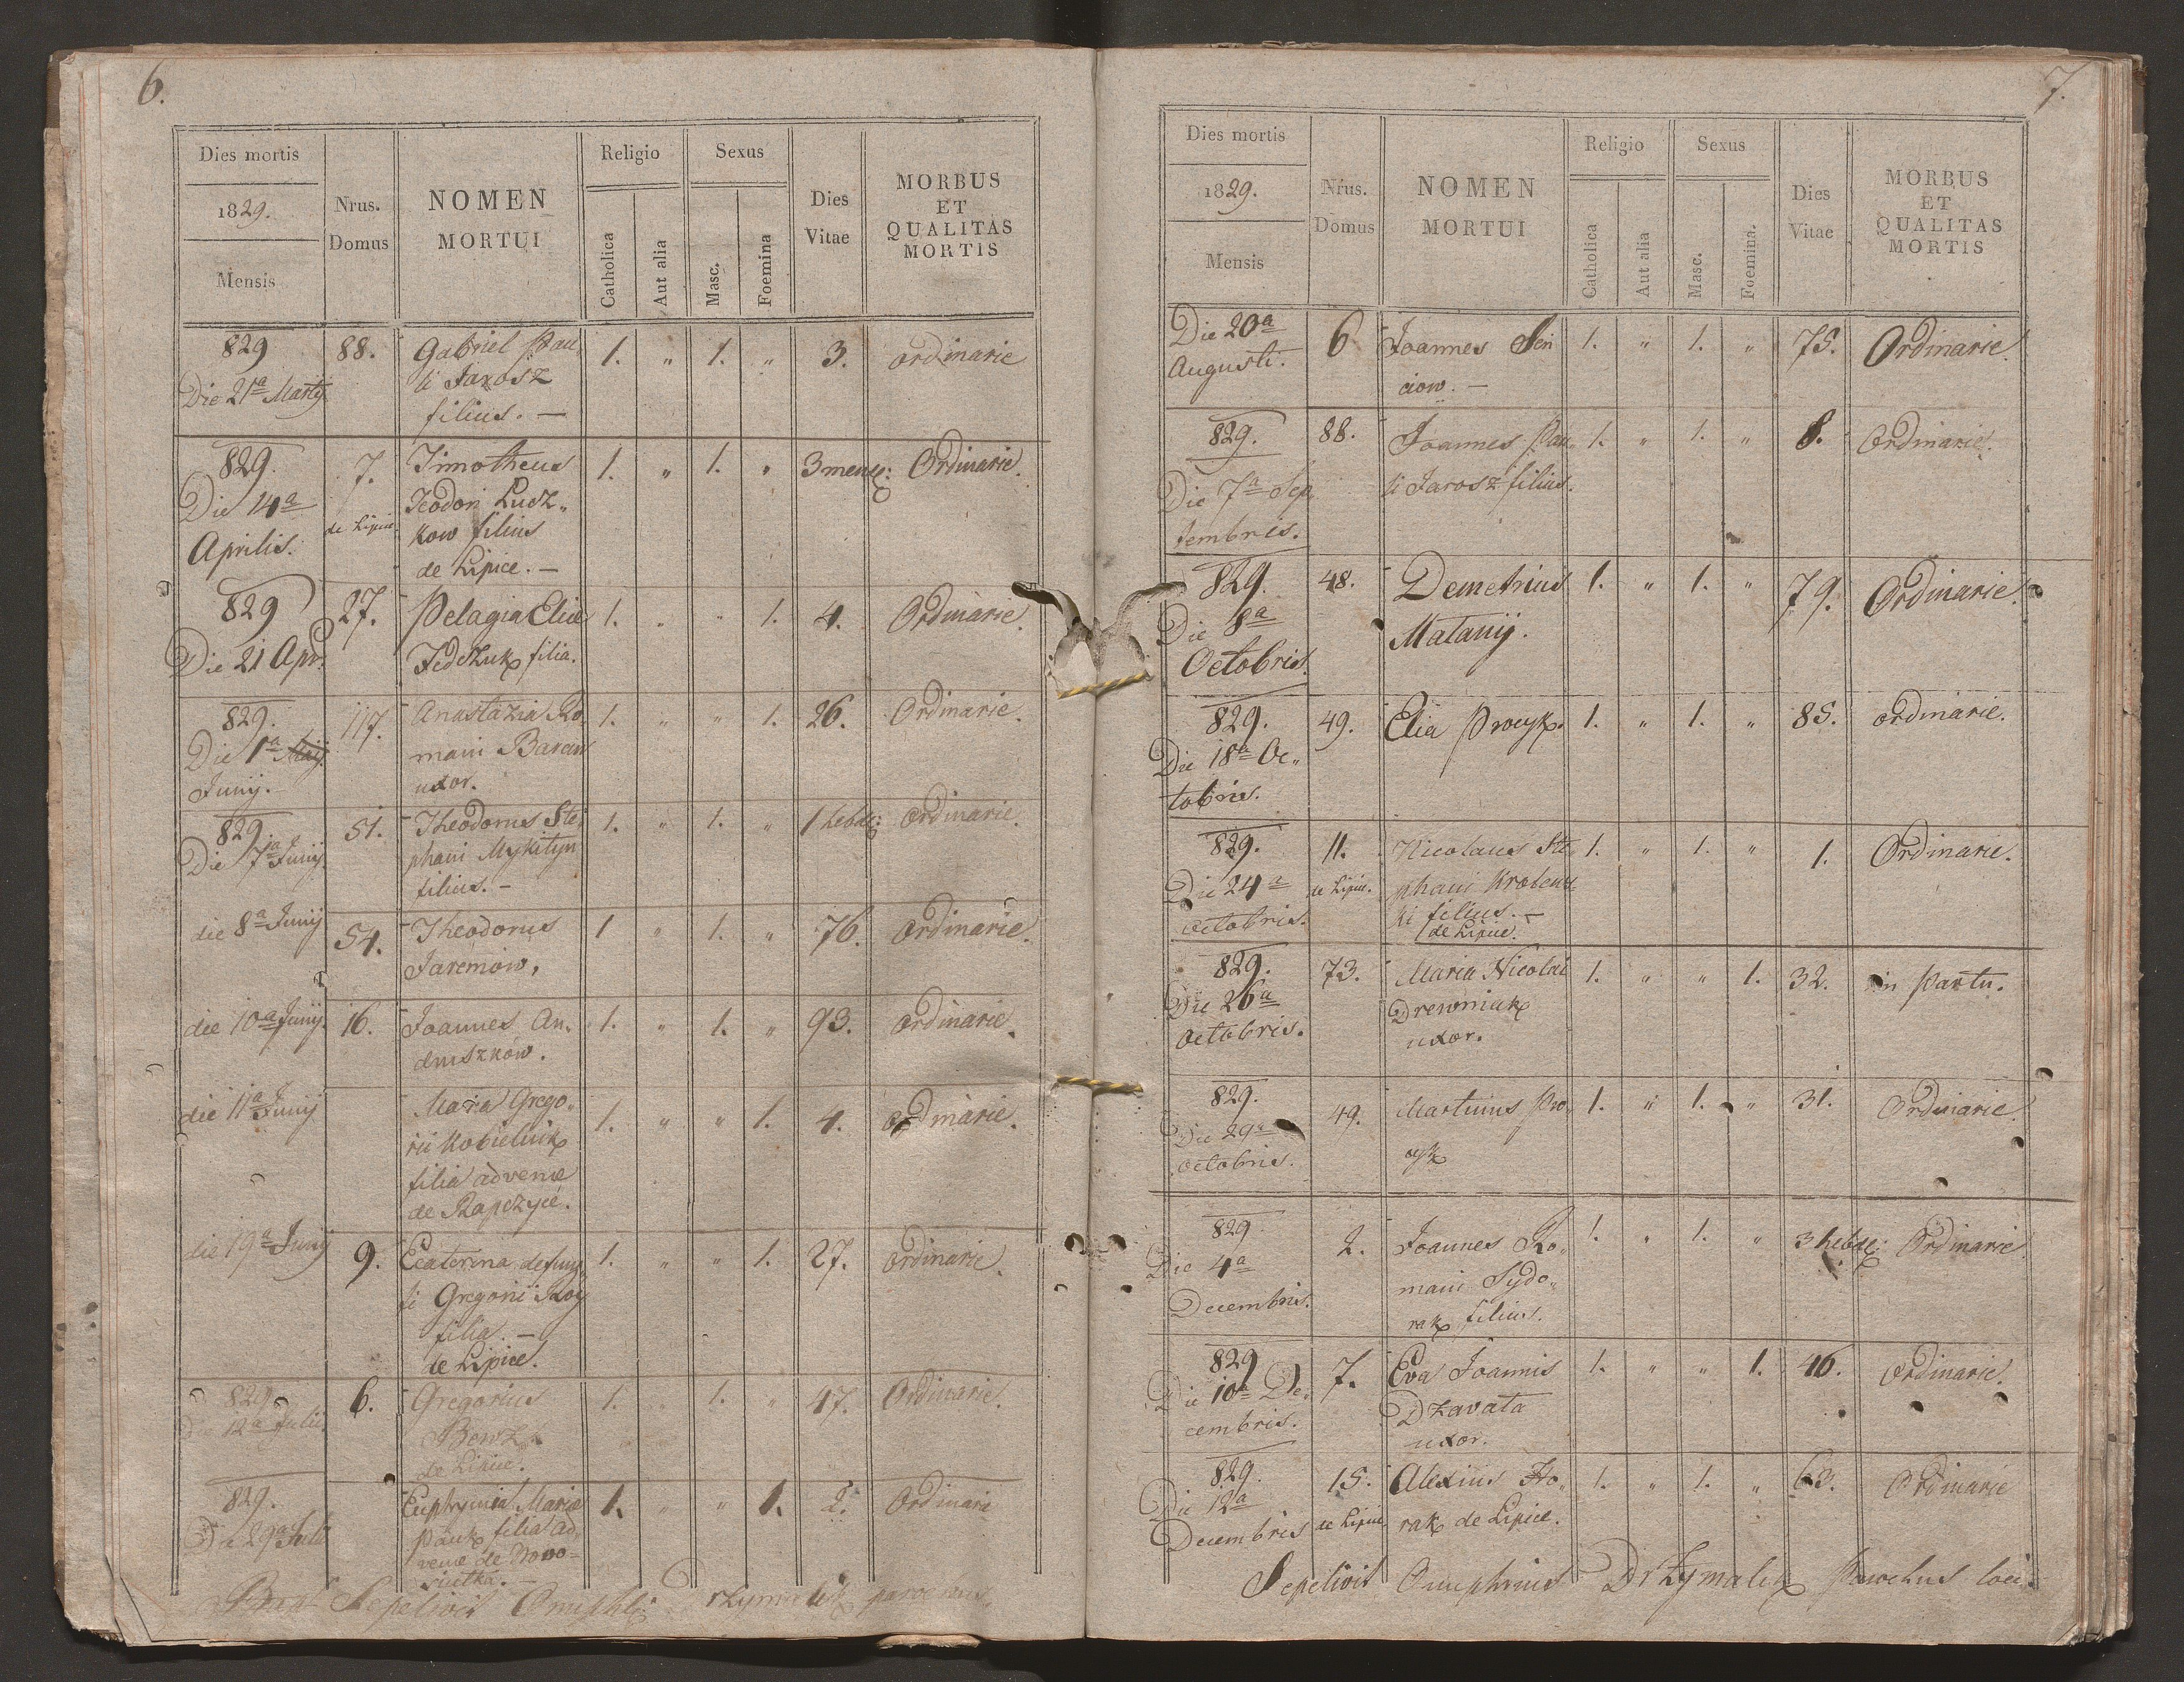 6.
Dies mortis
1829.
Mensis
Nrus.
Domus
NOMEN
MORTUI
Religio
Catholica
Aut alia
Sexus
Masc.
Foemina
Dies
Vitae
MORBUS
ET
QUALITAS
MORTIS
829
Die 21a Martij
88.
Gabriel Pau„
li Jarosz
filius. —
1. „ 1. „ 3. ordinarie
829.
Die 14a
Aprilis.
7.
de Lipice.
Timotheus
Teodori Ludz„
kow filius
de Lipice. —
1. „ 1. „ 3 mens: Ordinarie.
829
Die 21 Apr.
27.
Pelagia Eliae
Fedczuk filia.
1. „ „ 1. 4. Ordinarie.
829.
Die 1a Maij
Junij.
117.
Anastazia Ro„
mani Baran
uxor.
1. „ „ 1. 26. Ordinarie.
829.
Die 7a Junij.
51.
Theodorus Ste„
phani Mykityn
filius. —
1. „ 1. „ 1 hebd: ordinarie.
die 8a Junij
54.
Theodorus
Jaremow.
1 „ 1. „ 76. ordinarie.
die 10a Junij.
16.
Joannes An„
druszków.
1. „ 1. „ 93. ordinarie.
die 11a Junij
Maria Grego„
rii Kobieluk
filia advenae
de
1. „ „ 1. 4. ordinarie.
die 19a Junij
9.
Ecaterina defunc„
ti Gregorii
filia. —
de Lipice.
1. „ „ 1. 27. ordinarie.
829
Die 12a Julii.
6.
Gregorius
de Lipice.
1. „ 1. „ 47. Ordinarie.
829.
Die 29a Julii
Euphymia Mariae
Pauk filia ad„
venae de Nowo„
sielka. —
1. „ „ 1. 2. Ordinarie
Sepelivit parochus.
7.
Dies mortis
1829.
Mensis
Nrus.
Domus
NOMEN
MORTUI
Religio
Catholica
Aut alia
Sexus
Masc.
Foemina.
Dies
Vitae
MORBUS
ET
QUALITAS
MORTIS
Die 20a
Augusti.
6
Joannes Sen
ciow. —
1. „ 1. „ 75. Ordinarie.
829.
Die 7a Sep„
tembris.
88.
Joannes Pau„
li Jarosz filius.
1. „ 1. „ 8. Ordinarie.
829.
Die 8a
Octobris.
48.
Demetrius
Matanij.
1. „ 1. „ 79. Ordinarie.
829.
Die 18a Oc„
tobris.
49.
Elia Procyk.
1. „ 1. „ 85. ordinarie.
829.
Die 24a
octobris.
11.
de Lipice.
Nicolaus Ste„
phani
ki filius. —
de Lipice.
1. „ 1. „ 1. Ordinarie.
829.
Die 26a
octobris.
73.
Maria Nicolai
Drewniuk
uxor.
1. „ „ 1. 32. in Partu.
829.
Die 29a
octobris.
49.
Martinus Pro„
cyk
1. „ 1. „ 31. Ordinarie.
829
Die 4a
Decembris.
2.
Joannes Ro„
mani Sydo„
rak filius.
1. „ 1. „ 3 hebd: Ordinarie
829
Die 10a De„
cembris.
7.
Eva Joannis
Dzavata
uxor.
1. „ „ 1. 46. Ordinarie.
829.
Die 12a
Decembris
15.
de Lipice.
Alexius Ho„
rak de Lipice.
1. „ 1. „ 63. Ordinarie
Sepelivit Onuphrius Drzymalik Parochus loci.